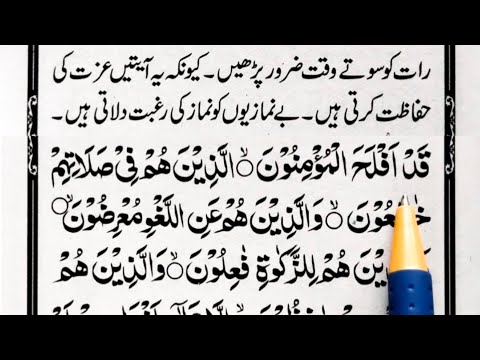 رات کو سوتے وقت ضرور پڑھیں۔ کیونکہ یہ آیتیں عزت کی
حفاظت کرتی ہیں۔ بے نمازیوں کو نماز کی رغبت دلاتی ہیں۔
قَدْ اَفْلَحَ الْمُؤْمِنُوْنَ ۙ الَّذِیْنَ هُمْ فِیْ صَلَاتِهِمْ
خٰشِعُوْنَ ۙ وَالَّذِیْنَ هُمْ عَنِ اللَّغْوِ مُعْرِضُوْنَ ۙ
وَالَّذِیْنَ هُمْ لِلزَّكٰوةِ فٰعِلُوْنَ ۙ وَالَّذِیْنَ هُمْ